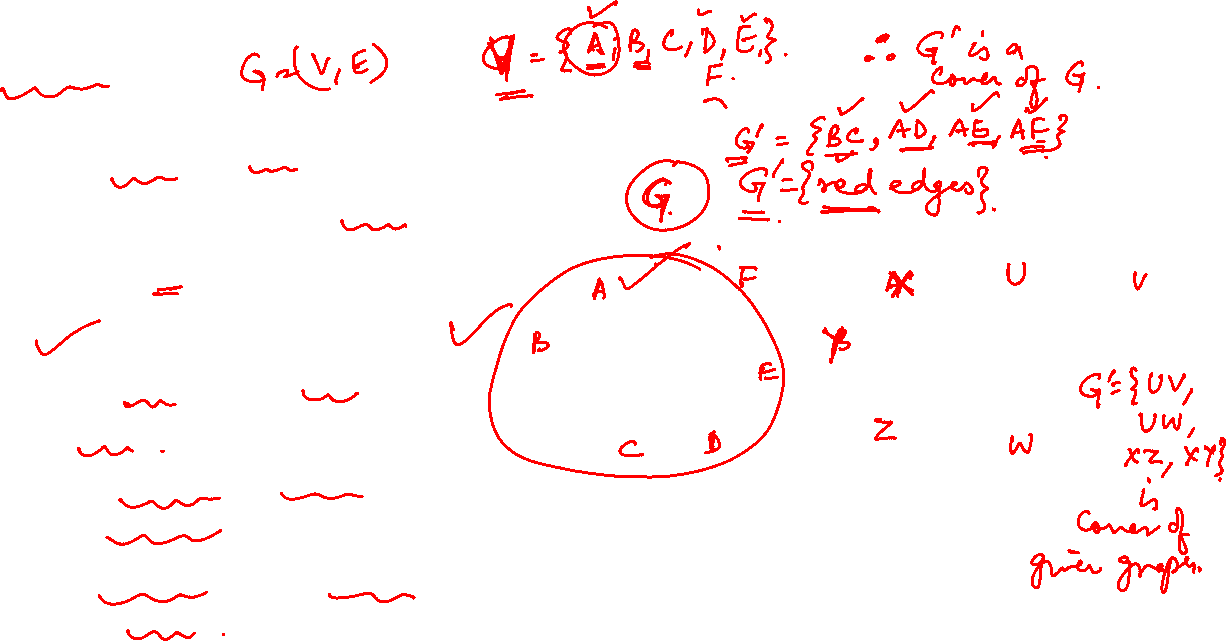 G=(V, E)
V = {A, B, C, D, E,}.
F.
∴ G' is a
cover of G.
G' = {BC, AD, AE, AF}
G' = {red edges}.
G
A
F
B
E
C
D
X
U
V
Y
Z
W
G' = {UV,
UW,
XZ, XY}
is
cover of
given graph.